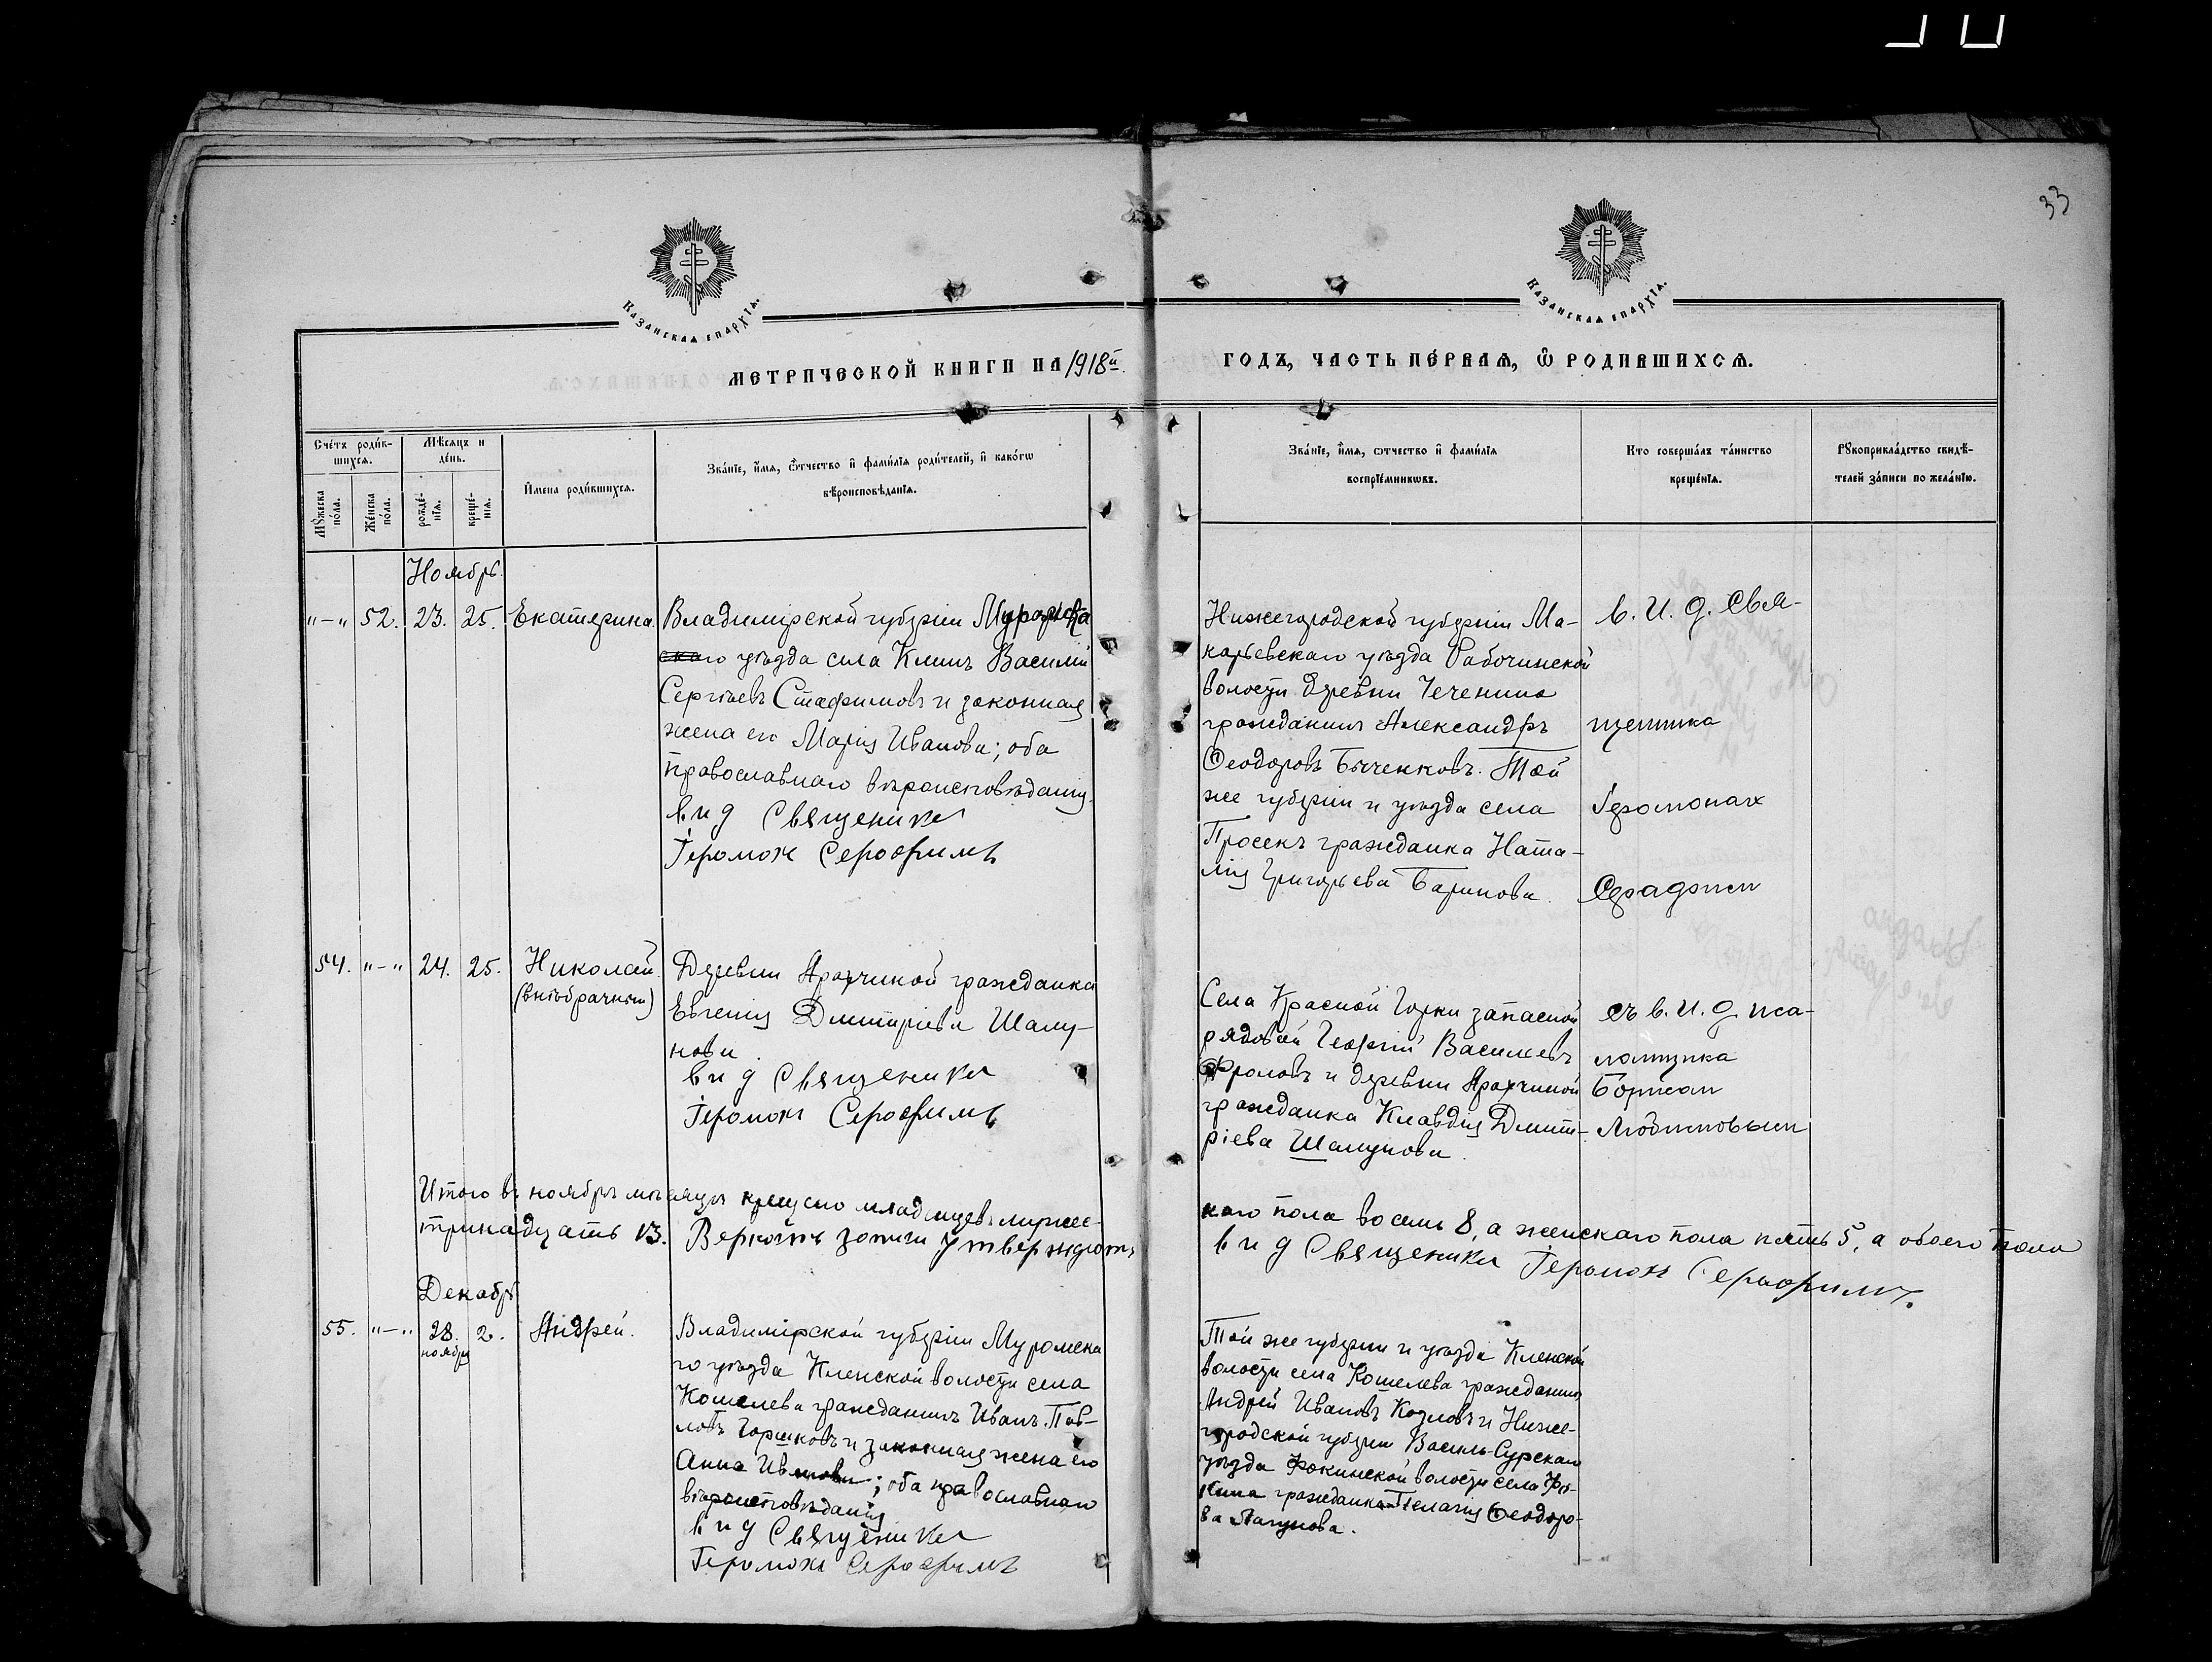 33
КАЗАНСКАЯ ЕПАРХІЯ.
КАЗАНСКАЯ ЕПАРХІЯ.
МЕТРИЧЕСКОЙ КНИГИ НА 1918й
ГОДЪ, ЧАСТЬ ПЕ́РВАЯ, Ѽ РОДИВШИХСЯ.
Сче́тъ роди́в-
шихся.
Мѣ́сяцъ и
де́нь.
Мꙋ́жеска
по́ла.
Же́нска
по́ла.
рожде́-
нія.
креще́-
нія.
И҆мена роди́вшихся.
Зва́ніе, и҆́мя, ѻ҆́тчество и҆ фами́лія роди́телей, и҆ како́гѡ
вѣроисповѣ́данія.
Зва́ніе, и҆́мя, ѻтчество и҆ фами́лія
воспріе́мникѡвъ.
Кто соверша́лъ та́инство
креще́нія.
Рꙋкоприкла́дство свидѣ́-
телей за́писи по жела́нію.
Ноябрь.
"-" 52. 23. 25. Екатерина.
Владимірской губерніи Муромска
скаго уѣзда села Клинъ Василій
Сергѣевъ Стафимовъ и законная
жена его Марія Иванова; оба
православнаго вѣроисповѣданія.
в и д Священика
Іеромон Серафимъ
Нижегородской губерніи Ма-
карьевскаго уѣзда Работкинской
волости деревни Чеченина
гражданинъ Александръ
Ѳеодоровъ Быченковъ. Той
же губерніи и уѣзда села
Просекъ гражданка Ната-
лія Григорьева Баринова.
в. И. д. Свя-
щенника
Іеромонах
Серафим
54. "-" 24. 25. Николай.
(внѣбрачный)
Деревни Аракчиной гражданка
Евгенія Димитріева Шалу-
нова.
в и д Священика
Іеромонах Серафимъ
Села Красной Горки запасной
рядовой Георгій Васильевъ
Фроловъ и деревни Аракчиной
гражданка Клавдія Димит-
ріева Шалунова.
съ в. И. д. пса-
ломщика
Борисом
Любимовым
Итого въ ноябрѣ мѣсяцѣ крещено младенцевъ мужес-
каго пола восемь 8, а женскаго пола пять 5, а обоего пола
тринадцать 13. Верность записи утверждаютъ
в и д Священика Іеромонах Серафимъ.
Декабрь
55. "-" 28. 2. Андрей.
ноября
Владимірской губерніи Муромска
го уѣзда Клинской волости села
Кошелева гражданинъ Иванъ Пав-
ловъ Горшковъ и законная жена его
Анна Иванова; оба православнаго
вѣроисповѣданія
в и д Священика
Іеромонах Серафимъ
Той же губерніи и уѣзда Клинской
волости села Кошелева гражданинъ
Андрей Ивановъ Козловъ и Ниже-
городской губерніи Василь-Сурскаго
уѣзда Фокинской волости села Фо-
кина гражданка Пелагія Ѳеодоро-
ва Лагунова.